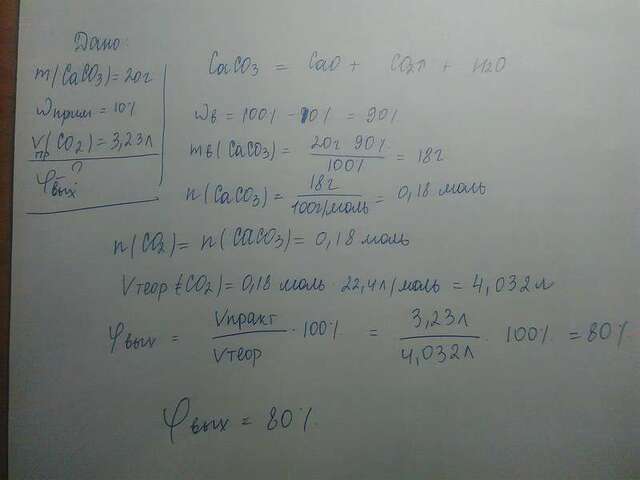 Дано:
m(CaCO3) = 20г
ωприм = 10%
Vпр(CO2) = 3,23л
φвых - ?
CaCO3 = CaO + CO2↑ + H2O
ωв = 100% - 10% = 90%
mв(CaCO3) = 20г 90% / 100% = 18г
n(CaCO3) = 18г / 100г/моль = 0,18 моль
n(CO2) = n(CaCO3) = 0,18 моль
Vтеор (CO2) = 0,18 моль · 22,4л/моль = 4,032л
φвых = Vпракт / Vтеор · 100% = 3,23л / 4,032л · 100% = 80%
φвых = 80%.